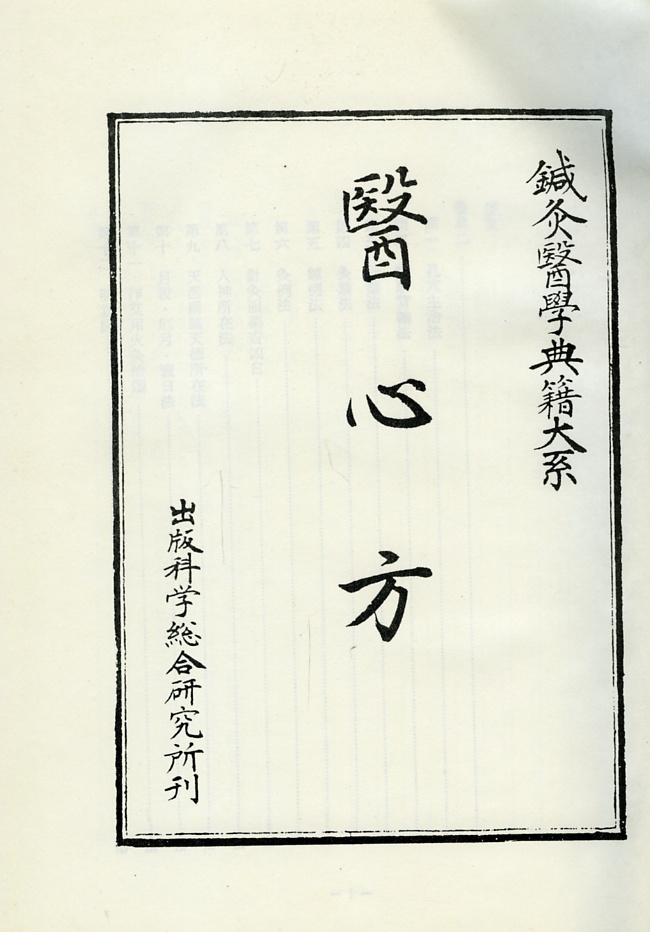 鍼灸醫學典籍大系
醫心方
出版科学総合研究所刊